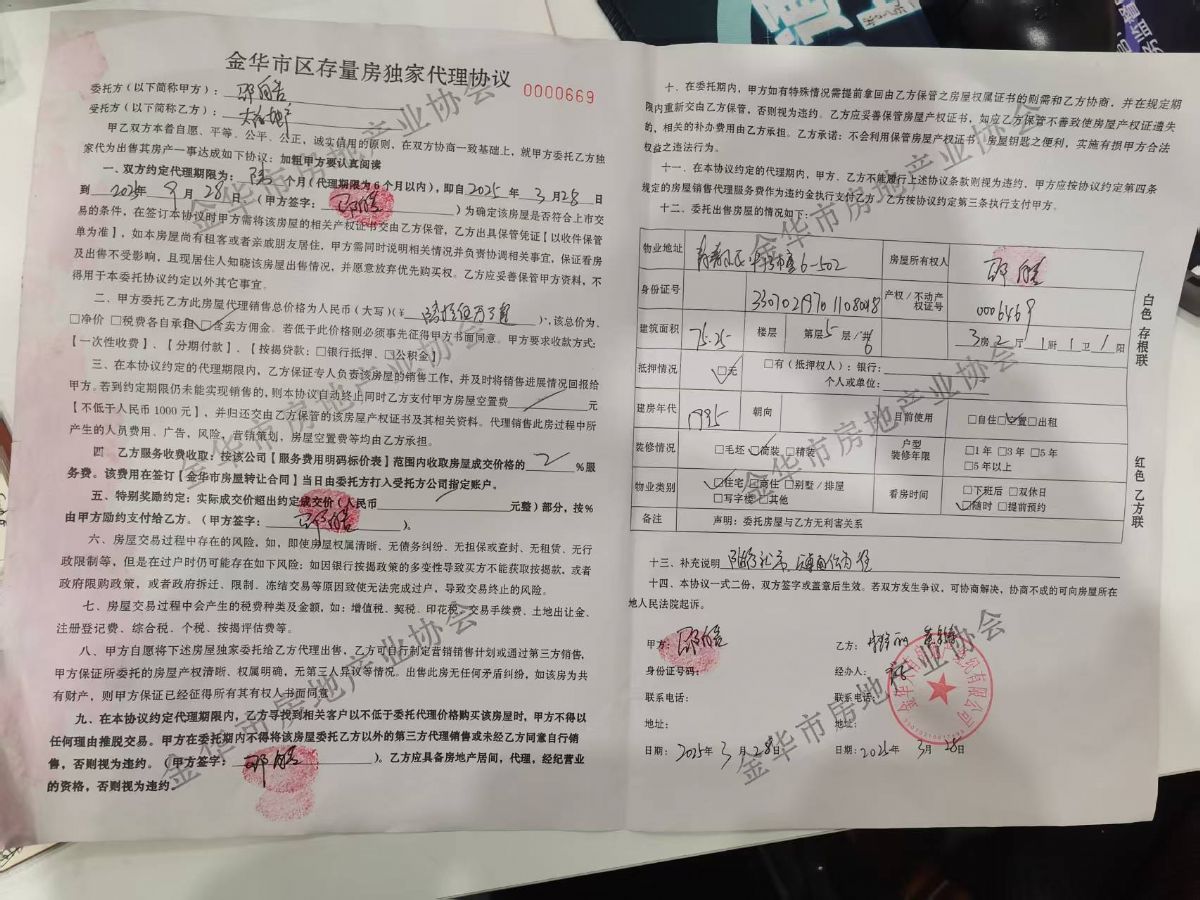 金华市区存量房独家代理协议
0000669
委托方（以下简称甲方）：
受托方（以下简称乙方）：
甲乙双方本着自愿、平等、公平、公正，诚实信用的原则，在双方协商一致基础上，就甲方委托乙方独
家代为出售其房产一事达成如下协议：加粗甲方要认真阅读
一．双方约定代理期限为： 陆 个月（代理期限为6个月以内），即自 2025 年 3 月 28 日
到 2025年 9 月 28日（甲方签字： ）为确定该房屋是否符合上市交
易的条件，在签订本协议时甲方需将该房屋的相关产权证书交由乙方保管，乙方出具保管凭证【以收件保管
单为准】，如本房屋尚有租客或者亲戚朋友居住，甲方需同时说明相关情况并负责协调相关事宜，保证看房
及出售不受影响，且现居住人知晓该房屋出售情况，并愿意放弃优先购买权。乙方应妥善保管甲方资料，不
得用于本委托协议约定以外其它事宜。
二、甲方委托乙方此房屋代理销售总价格为人民币（大写）（¥ ），该总价为、
□净价 □税费各自承担 □含卖方佣金。若低于此价格则必须事先征得甲方书面同意。甲方要求收款方式：
【一次性收费】、【分期付款】、【按揭贷款：□银行抵押、□公积金】
三、在本协议约定的代理期限内，乙方保证专人负责该房屋的销售工作，并及时将销售进展情况回报给
甲方。若到约定期限仍未能实现销售的，则本协议自动终止同时乙方支付甲方房屋空置费 元
【不低于人民币 1000 元】，并归还交由乙方保管的该房屋产权证书及其相关资料。代理销售此房过程中所
产生的人员费用、广告，风险，营销策划，房屋空置费等均由乙方承担。
四 乙方服务收费收取：按该公司【服务费用明码标价表】范围内收取房屋成交价格的 2 %服
务费。该费用在签订【金华市房屋转让合同】当日由委托方打入受托方公司指定账户。
五．特别奖励约定：实际成交价超出约定成交价（人民币 元整）部分，按%
由甲方励约支付给乙方。（甲方签字： ）。
六、房屋交易过程中存在的风险，如，即使房屋权属清晰、无债务纠纷、无担保或查封、无租赁、无行
政限制等，但是在过户时仍可能存在如下风险：如因银行按揭政策的多变性导致买方不能获取按揭款，或者
政府限购政策，或者政府拆迁、限制、冻结交易等原因致使无法完成过户，导致交易终止的风险。
七、房屋交易过程中会产生的税费种类及金额，如：增值税、契税、印花税、交易手续费、土地出让金、
注册登记费、综合税、个税、按揭评估费等。
八、甲方自愿将下述房屋独家委托给乙方代理出售，乙方可自行制定营销销售计划或通过第三方销售，
甲方保证所委托的房屋产权清晰、权属明确，无第三人异议等情况。出售此房无任何矛盾纠纷，如该房为共
有财产，则甲方保证已经征得所有其有权人书面同意
九、在本协议约定代理期限内，乙方寻找到相关客户以不低于委托代理价格购买该房屋时，甲方不得以
任何理由推脱交易。甲方在委托期内不得将该房屋委托乙方以外的第三方代理销售或未经乙方同意自行销
售，否则视为违约。（甲方签字： ）。乙方应具备房地产居间，代理，经纪营业
的资格，否则视为违约。
十．在委托期内，甲方如有特殊情况需提前拿回由乙方保管之房屋权属证书的则需和乙方协商，并在规定期
限内重新交由乙方保管，否则视为违约。乙方应妥善保管房屋产权证书，如应乙方保管不善致使房屋产权证遗失
的，相关的补办费用由乙方承担。乙方承诺：不会利用保管房屋产权证书、房屋钥匙之便利，实施有损甲方合法
权益之违法行为。
十一．在本协议约定的代理期内，甲方、乙方不能履行上述协议条款则视为违约，甲方应按协议约定第四条
规定的房屋销售代理服务费作为违约金执行支付乙方，乙方按协议约定第三条执行支付甲方。
十二．委托出售房屋的情况如下：
物业地址 6-502 房屋所有权人
身份证号 330702197011080418 产权／不动产权证号 0006469
建筑面积 75.25 楼层 第层5层/共6 3房2厅1厨1卫1阳
抵押情况 □无 □有（抵押权人）：银行：
个人或单位：
建房年代 1995 朝向 目前使用 □自住□空置□出租
装修情况 □毛坯 □简装 □精装 户型装修年限 □1年 □3年 □5年
□5年以上
物业类别 □住宅 □商住 □别墅/排屋
□写字楼 □其他
看房时间 □下班后 □双休日
□随时 □提前预约
备注 声明：委托房屋与乙方无利害关系
十三．补充说明
十四．本协议一式二份，双方签字或盖章后生效。若双方发生争议，可协商解决，协商不成的可向房屋所在
地人民法院起诉。
甲方： 乙方：
身份证号码： 经办人：
联系电话： 联系电话：
地址： 地址：
日期：2025年 3月 28日 日期：2025年 3月 28日
白色 存根联
红色 乙方联
金华市房地产业协会